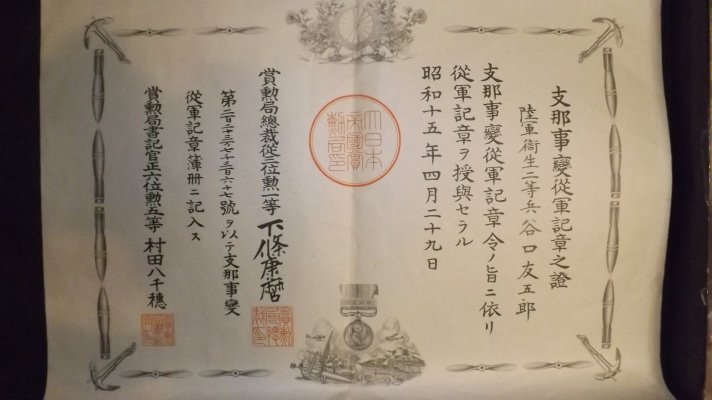 支那事變從軍記章之證
陸軍衞生二等兵谷口友五郎
支那事變從軍記章令ノ旨ニ依リ
從軍記章ヲ授與セラル
昭和十五年四月二十九日
大日本
帝國賞
勲局印
賞勲局總裁從三位勲一等下條康麿
號ヲ以テ支那事變
從軍記章簿册ニ記入ス
賞勲局書記官正六位勲五等村田八千穗